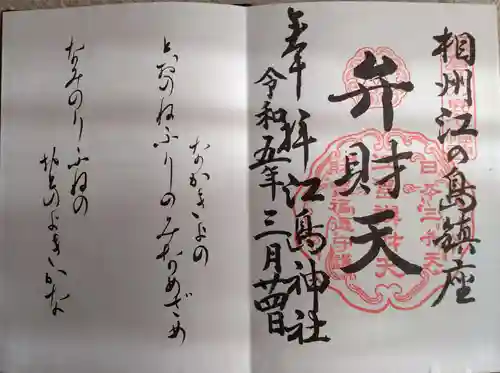 相州江の島鎮座
弁財天
奉拝 江島神社
令和五年三月廿四日
日本三弁天
なかきよの
とおのねふりのみなめざめ
なみのりふねの
おとのよきかな